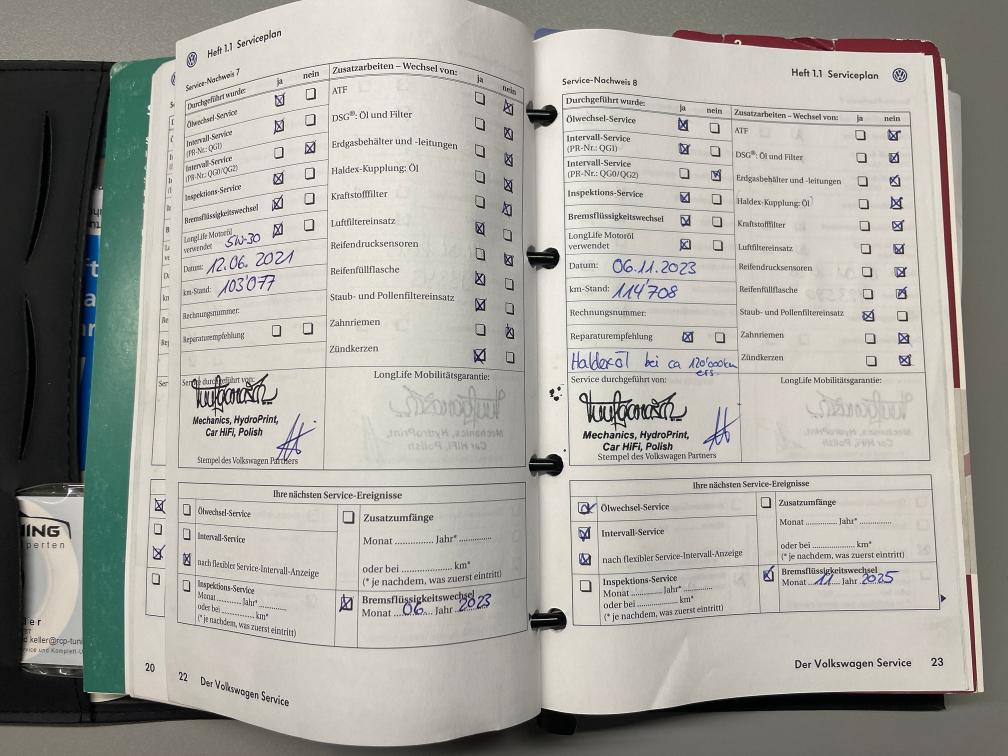 Heft 1.1 Serviceplan
Service-Nachweis 7
Durchgeführt wurde: ja nein
Ölwechsel-Service
Intervall-Service
(PR-Nr.: QG1)
Intervall-Service
(PR-Nr.: QG0/QG2)
Inspektions-Service
Bremsflüssigkeitswechsel
LongLife Motoröl
verwendet 5W-30
Datum: 12.06.2021
km-Stand: 103'077
Rechnungsnummer:
Reparaturempfehlung
Zusatzarbeiten – Wechsel von: ja nein
ATF
DSG®: Öl und Filter
Erdgasbehälter und -leitungen
Haldex-Kupplung: Öl
Kraftstofffilter
Luftfiltereinsatz
Reifendrucksensoren
Reifenfüllflasche
Staub- und Pollenfiltereinsatz
Zahnriemen
Zündkerzen
Service durchgeführt von:
Mechanics, HydroPrint,
Car HiFi, Polish
Stempel des Volkswagen Partners
LongLife Mobilitätsgarantie:
Ihre nächsten Service-Ereignisse
Ölwechsel-Service
Intervall-Service
nach flexibler Service-Intervall-Anzeige
Inspektions-Service
Monat ........... Jahr* ...........
oder bei .................. km*
(* je nachdem, was zuerst eintritt)
Zusatzumfänge
Monat ............ Jahr* ............
oder bei .................. km*
(* je nachdem, was zuerst eintritt)
Bremsflüssigkeitswechsel
Monat 06 Jahr 2023
20
22 Der Volkswagen Service
Heft 1.1 Serviceplan
Service-Nachweis 8
Durchgeführt wurde: ja nein
Ölwechsel-Service
Intervall-Service
(PR-Nr.: QG1)
Intervall-Service
(PR-Nr.: QG0/QG2)
Inspektions-Service
Bremsflüssigkeitswechsel
LongLife Motoröl
verwendet
Datum: 06.11.2023
km-Stand: 114'708
Rechnungsnummer:
Reparaturempfehlung
Haldexöl bei ca 120'000km
ers.
Zusatzarbeiten – Wechsel von: ja nein
ATF
DSG®: Öl und Filter
Erdgasbehälter und -leitungen
Haldex-Kupplung: Öl
Kraftstofffilter
Luftfiltereinsatz
Reifendrucksensoren
Reifenfüllflasche
Staub- und Pollenfiltereinsatz
Zahnriemen
Zündkerzen
Service durchgeführt von:
Mechanics, HydroPrint,
Car HiFi, Polish
Stempel des Volkswagen Partners
LongLife Mobilitätsgarantie:
Ihre nächsten Service-Ereignisse
Ölwechsel-Service
Intervall-Service
nach flexibler Service-Intervall-Anzeige
Inspektions-Service
Monat ........... Jahr* ...........
oder bei .................. km*
(* je nachdem, was zuerst eintritt)
Zusatzumfänge
Monat ............ Jahr* ............
oder bei .................. km*
(* je nachdem, was zuerst eintritt)
Bremsflüssigkeitswechsel
Monat 11 Jahr 2025
Der Volkswagen Service 23